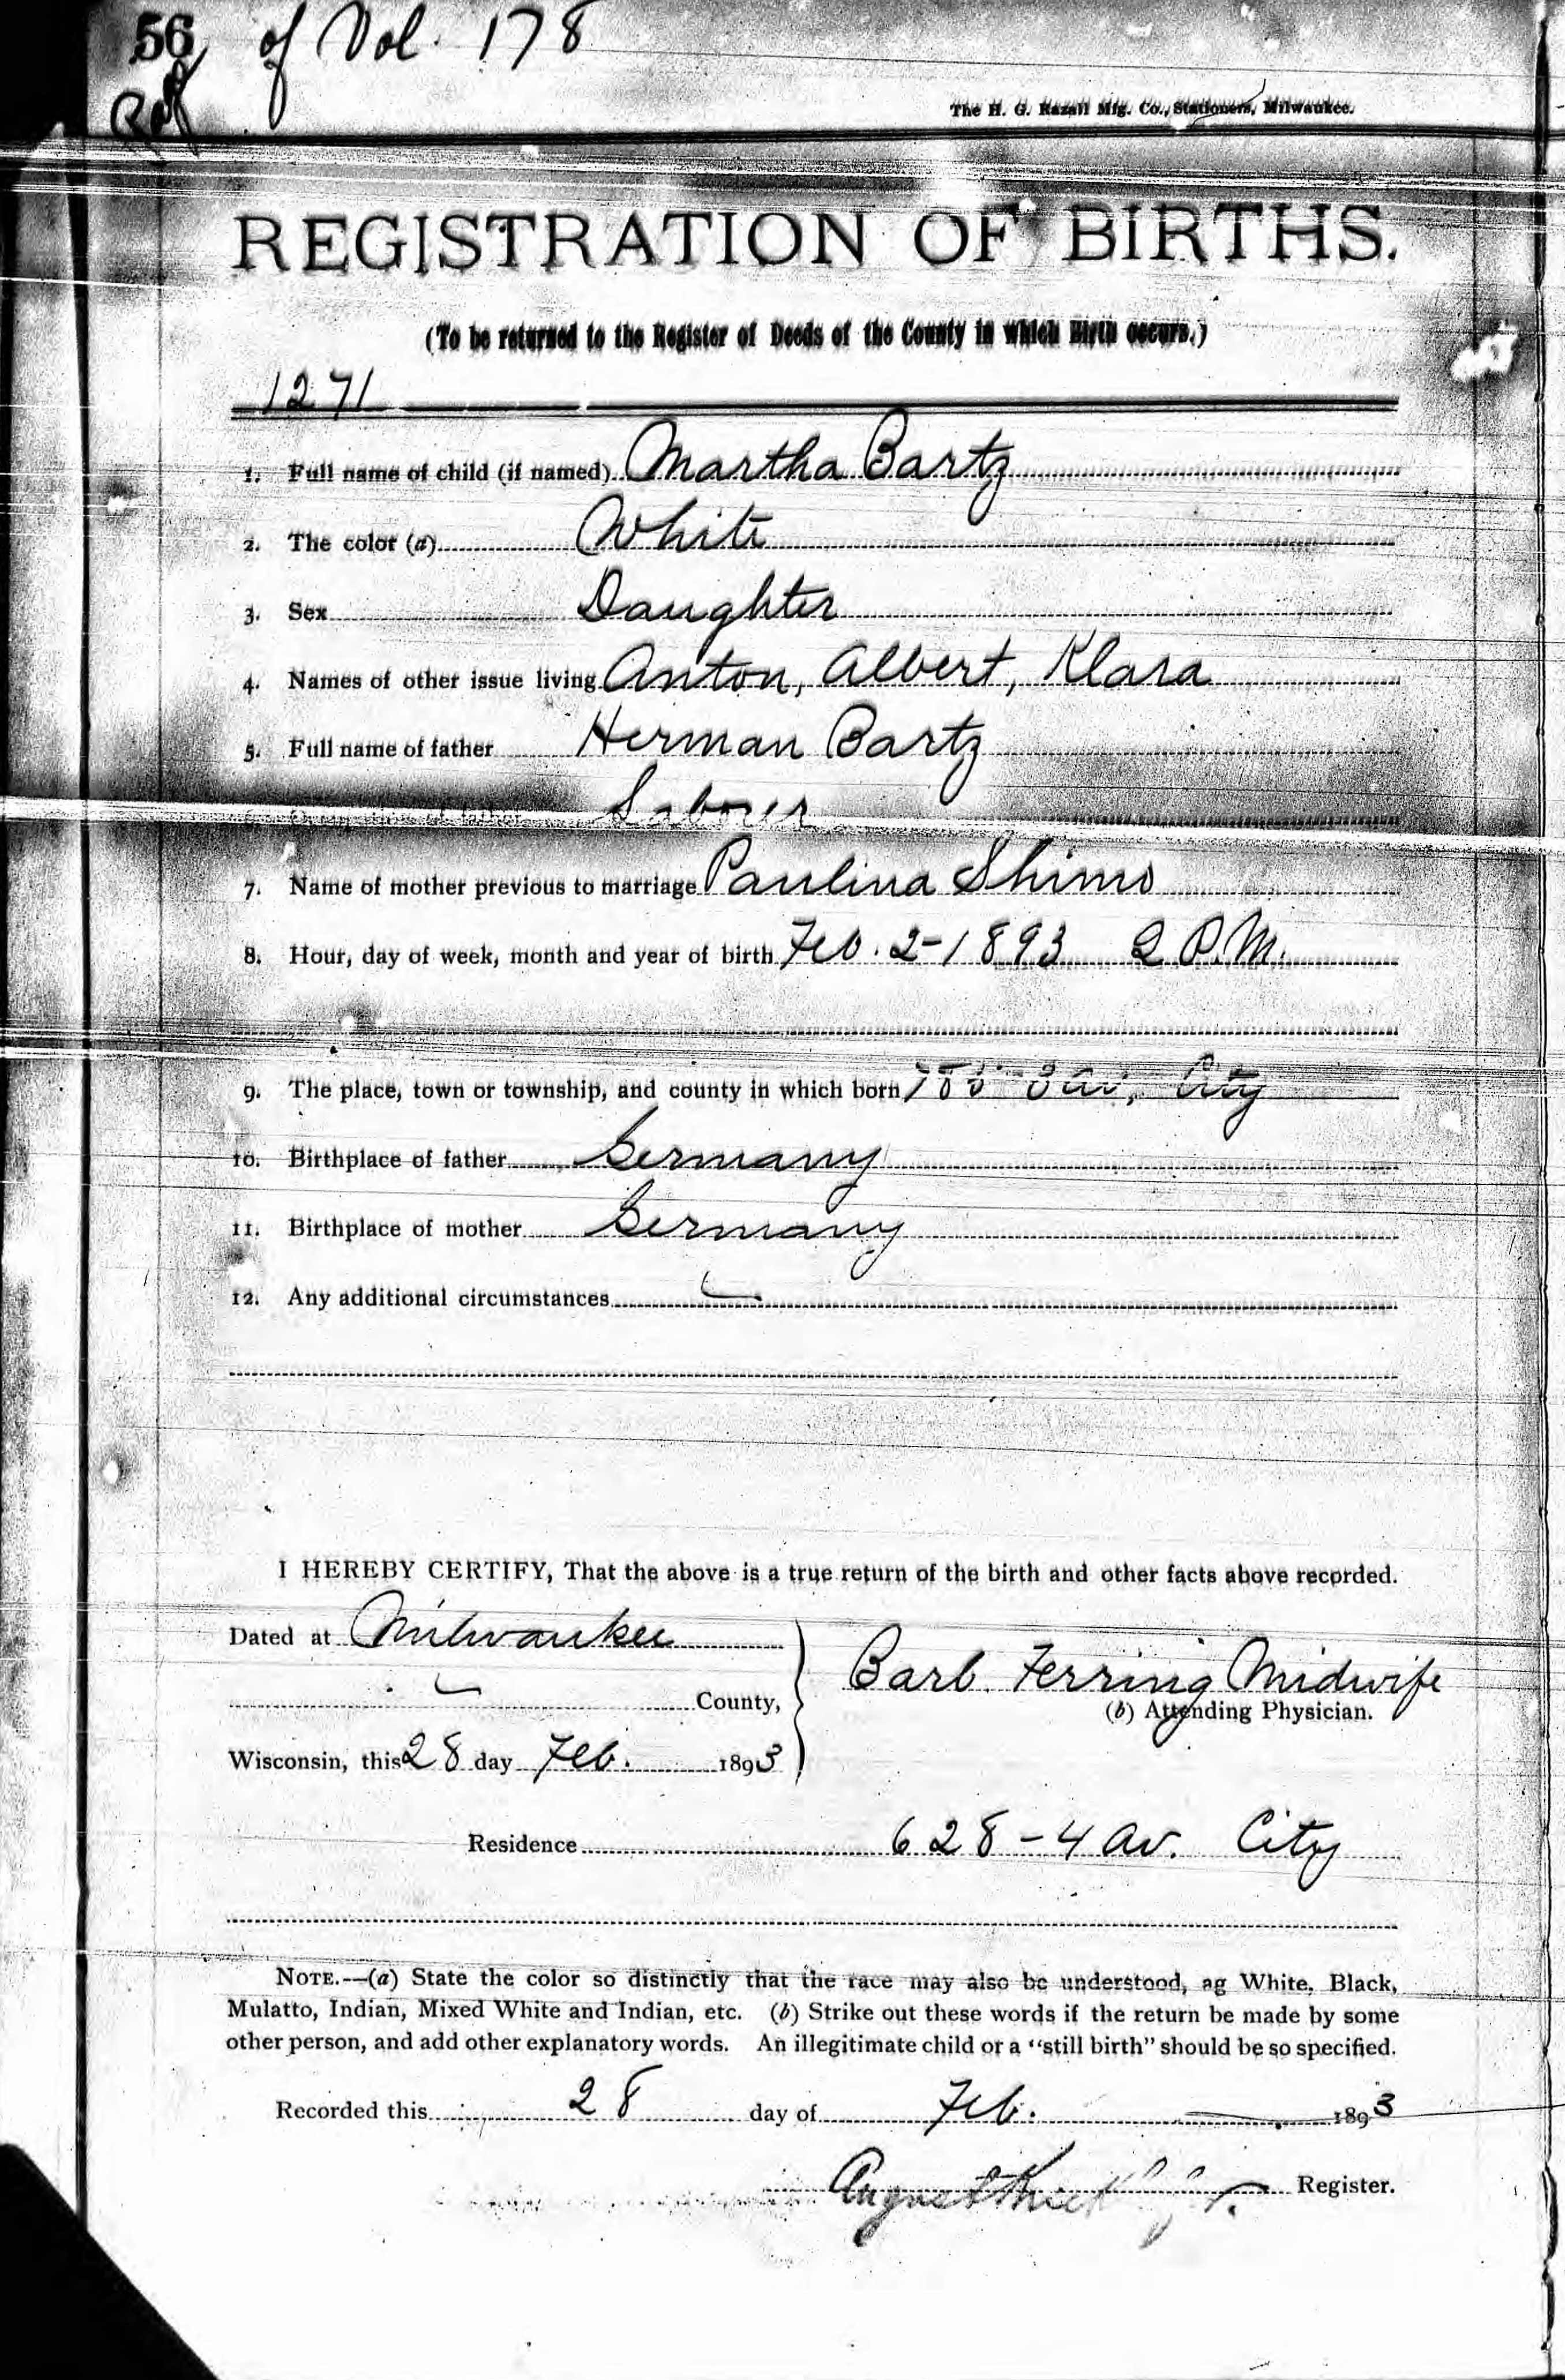 56 of Vol. 178
The H. G. Razall Mfg. Co., Stationers, Milwaukee.
REGISTRATION OF BIRTHS.
(To be returned to the Register of Deeds of the County in which Birth occurs.)
1271
1. Full name of child (if named) Martha Bartz
2. The color (a) White
3. Sex Daughter
4. Names of other issue living Anton, Albert, Klara
5. Full name of father Herman Bartz
Laborer
7. Name of mother previous to marriage Paulina Shims
8. Hour, day of week, month and year of birth Feb. 2-1893 2 P.M.
9. The place, town or township, and county in which born Av, City
10. Birthplace of father Germany
11. Birthplace of mother Germany
12. Any additional circumstances
I HEREBY CERTIFY, That the above is a true return of the birth and other facts above recorded.
Dated at Milwaukee
County,
Barb. Ferring Midwife
(b) Attending Physician.
Wisconsin, this 28 day Feb. 1893
Residence 628-4 Av. City
NOTE.—(a) State the color so distinctly that the race may also be understood, ag White, Black,
Mulatto, Indian, Mixed White and Indian, etc. (b) Strike out these words if the return be made by some
other person, and add other explanatory words. An illegitimate child or a "still birth" should be so specified.
Recorded this 28 day of Feb. 1893
August Register.